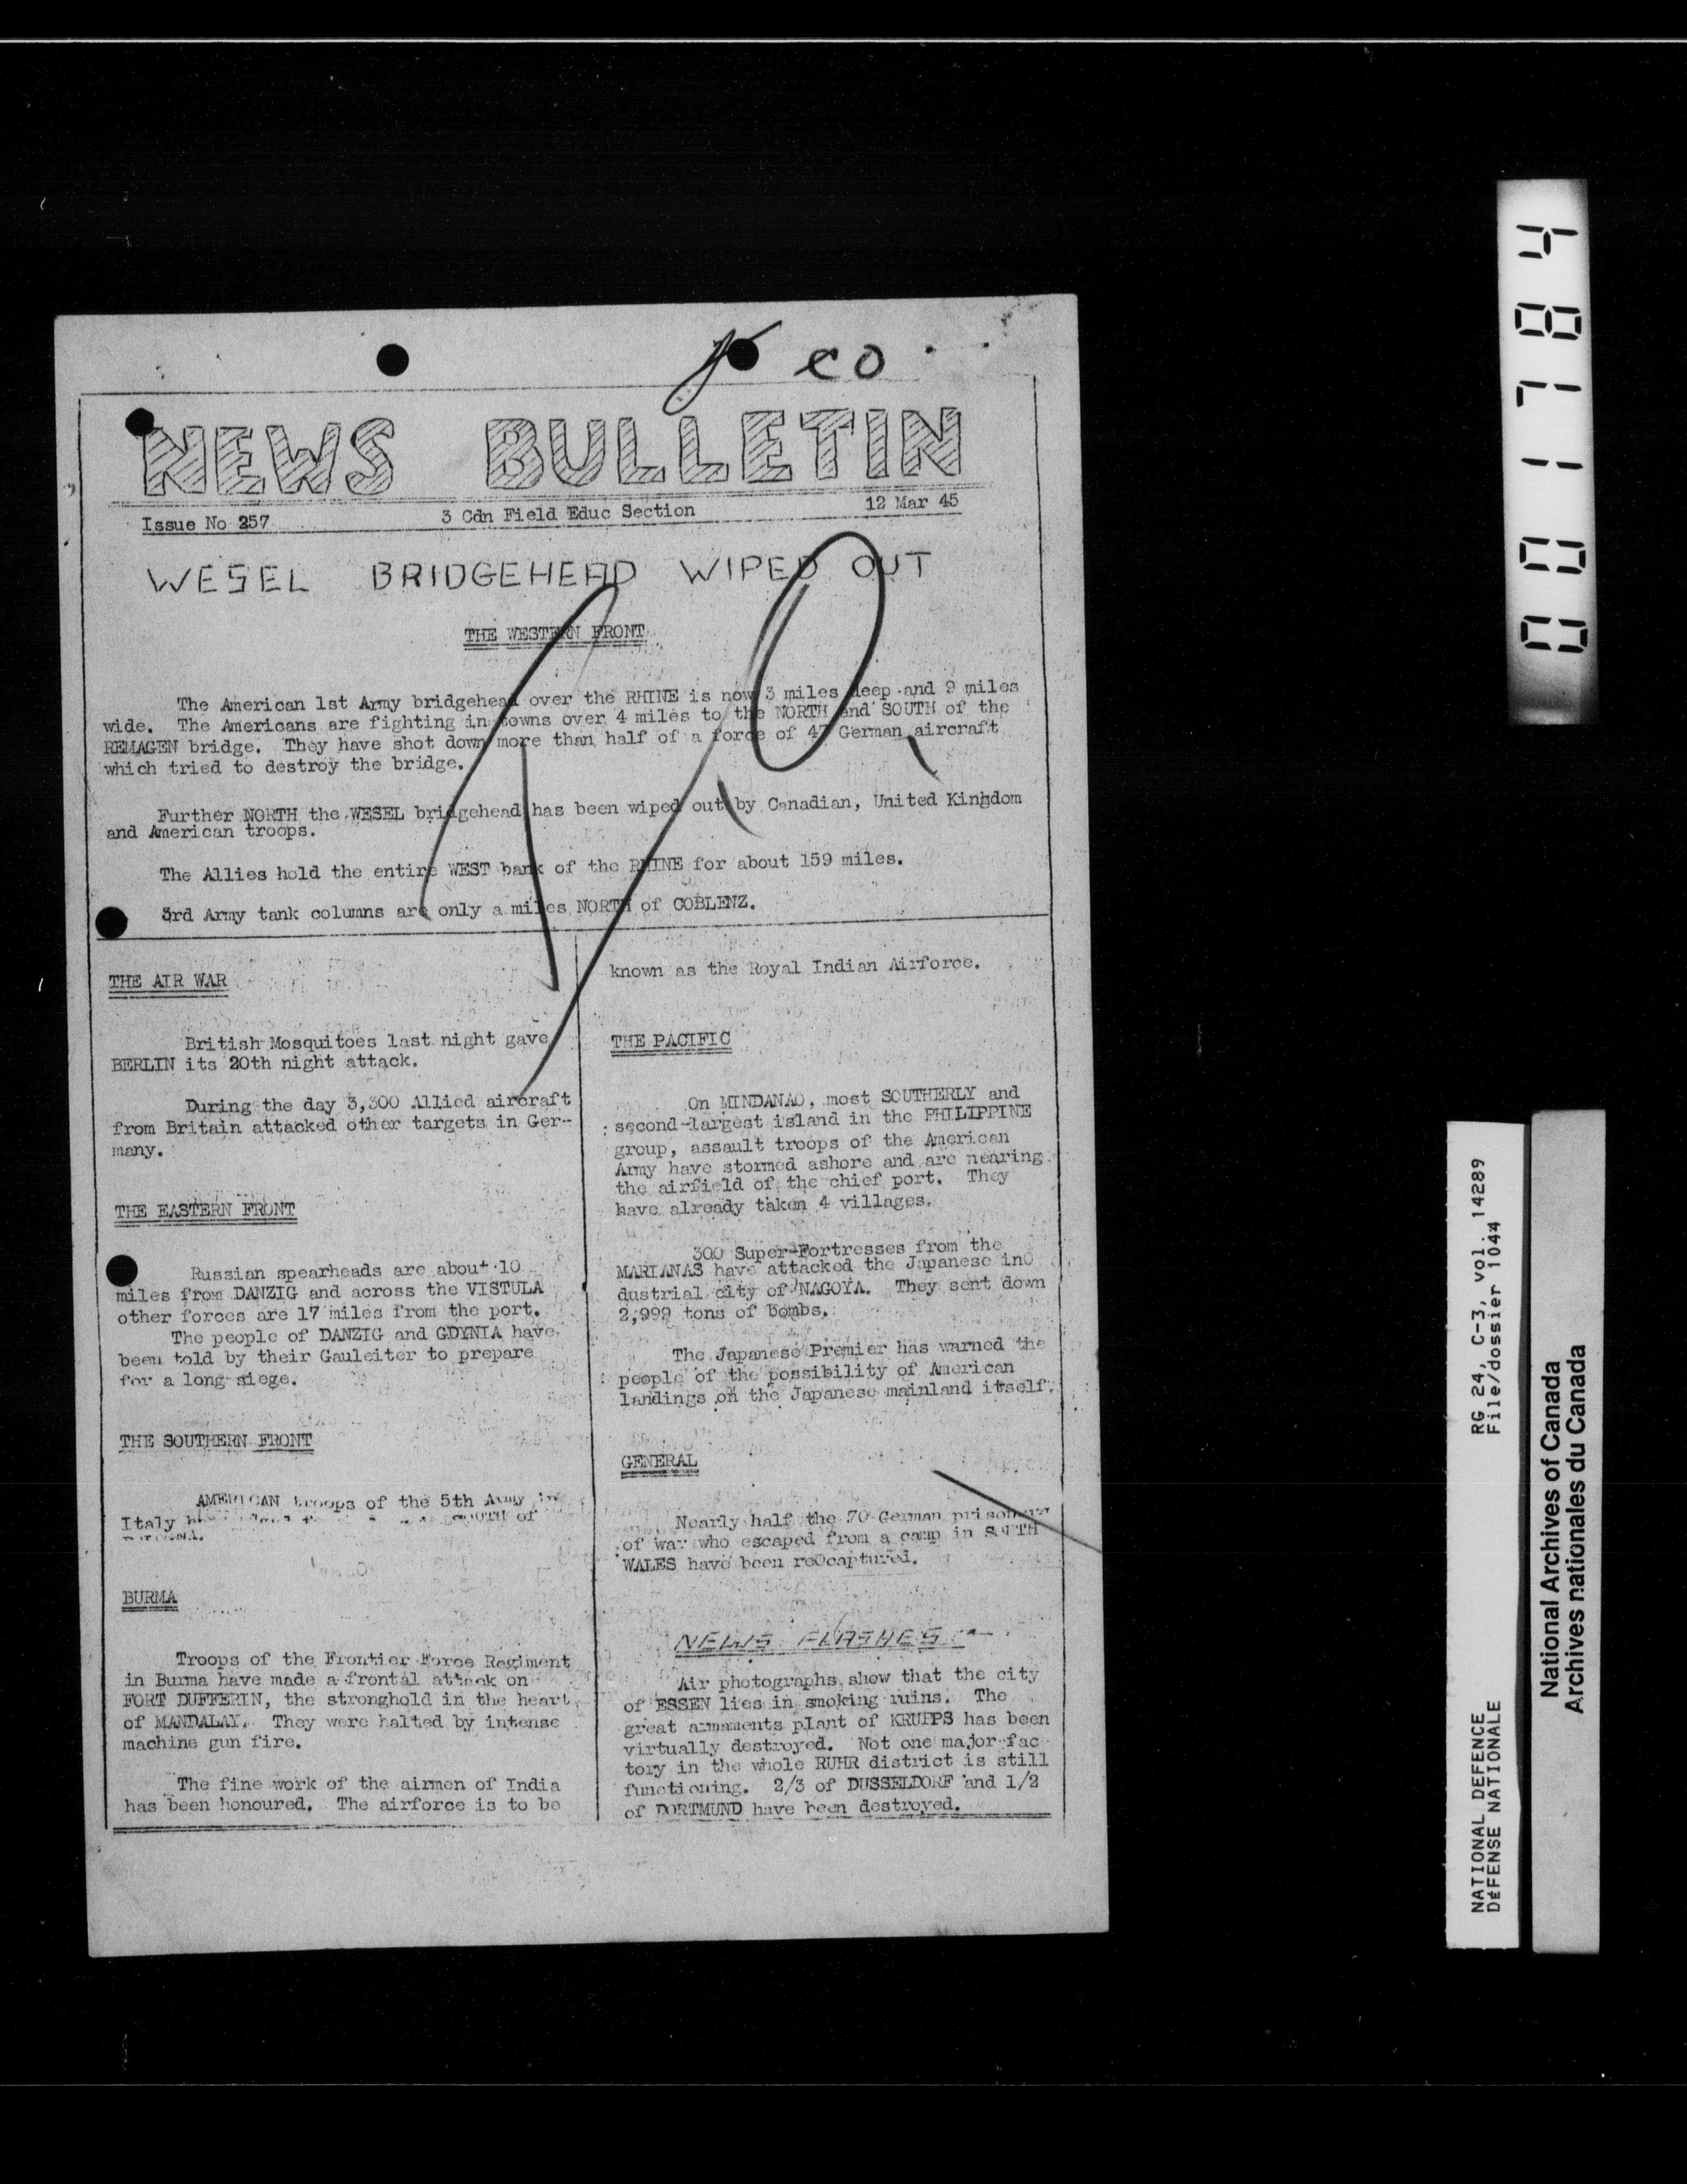 co
NEWS BULLETIN
Issue No 257 3 Cdn Field Educ Section 12 Mar 45
WESEL BRIDGEHEAD WIPED OUT
THE WESTERN FRONT
The American 1st Army bridgehead over the RHINE is now 3 miles deep and 9 miles
wide. The Americans are fighting in towns over 4 miles to the NORTH and SOUTH of the
REMAGEN bridge. They have shot down more than half of a force of 47 German aircraft
which tried to destroy the bridge.
Further NORTH the WESEL bridgehead has been wiped out by Canadian, United Kingdom
and American troops.
The Allies hold the entire WEST bank of the RHINE for about 159 miles.
3rd Army tank columns are only a miles NORTH of COBLENZ.
THE AIR WAR
British Mosquitoes last night gave
BERLIN its 20th night attack.
During the day 3,300 Allied aircraft
from Britain attacked other targets in Ger-
many.
THE EASTERN FRONT
Russian spearheads are about 10
miles from DANZIG and across the VISTULA
other forces are 17 miles from the port.
The people of DANZIG and GDYNIA have
been told by their Gauleiter to prepare
for a long siege.
THE SOUTHERN FRONT
AMERICAN troops of the 5th Army in
Italy SOUTH of
BURMA
Troops of the Frontier Force Regiment
in Burma have made a frontal attack on
FORT DUFFERIN, the stronghold in the heart
of MANDALAY. They were halted by intense
machine gun fire.
The fine work of the airmen of India
has been honoured. The airforce is to be
known as the Royal Indian Airforce.
THE PACIFIC
On MINDANAO, most SOUTHERLY and
second-largest island in the PHILIPPINE
group, assault troops of the American
Army have stormed ashore and are nearing
the airfield of the chief port. They
have already taken 4 villages.
300 Super-Fortresses from the
MARIANAS have attacked the Japanese in0
dustrial city of NAGOYA. They sent down
2,999 tons of bombs.
The Japanese Premier has warned the
people of the possibility of American
landings on the Japanese mainland itself.
GENERAL
Nearly half the 70 German prisoners
of war who escaped from a camp in SOUTH
WALES have been re0captured.
NEWS FLASHES
Air photographs show that the city
of ESSEN lies in smoking ruins. The
great armaments plant of KRUPPS has been
virtually destroyed. Not one major fac
tory in the whole RUHR district is still
functioning. 2/3 of DUSSELDORF and 1/2
of DORTMUND have been destroyed.
001784
NATIONAL DEFENCE RG 24, C-3, vol. 14289
DÉFENSE NATIONALE File/dossier 1044
National Archives of Canada
Archives nationales du Canada